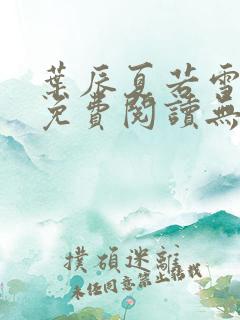 葉辰夏若雪
免費閱讀無
撲碩迷離
未經同意禁止轉載